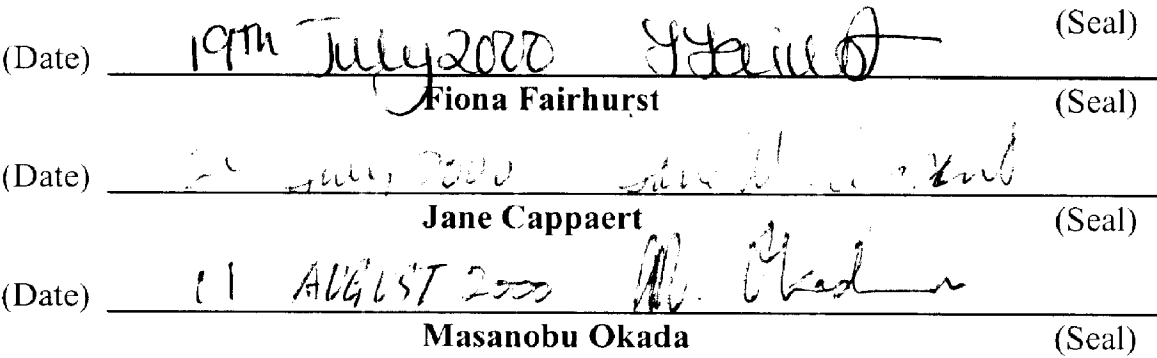 (Seal)
(Date) 19th July 2000
Fiona Fairhurst (Seal)
(Date) July 2000
Jane Cappaert (Seal)
(Date) 11 AUGUST 2000 M. Okada
Masanobu Okada (Seal)